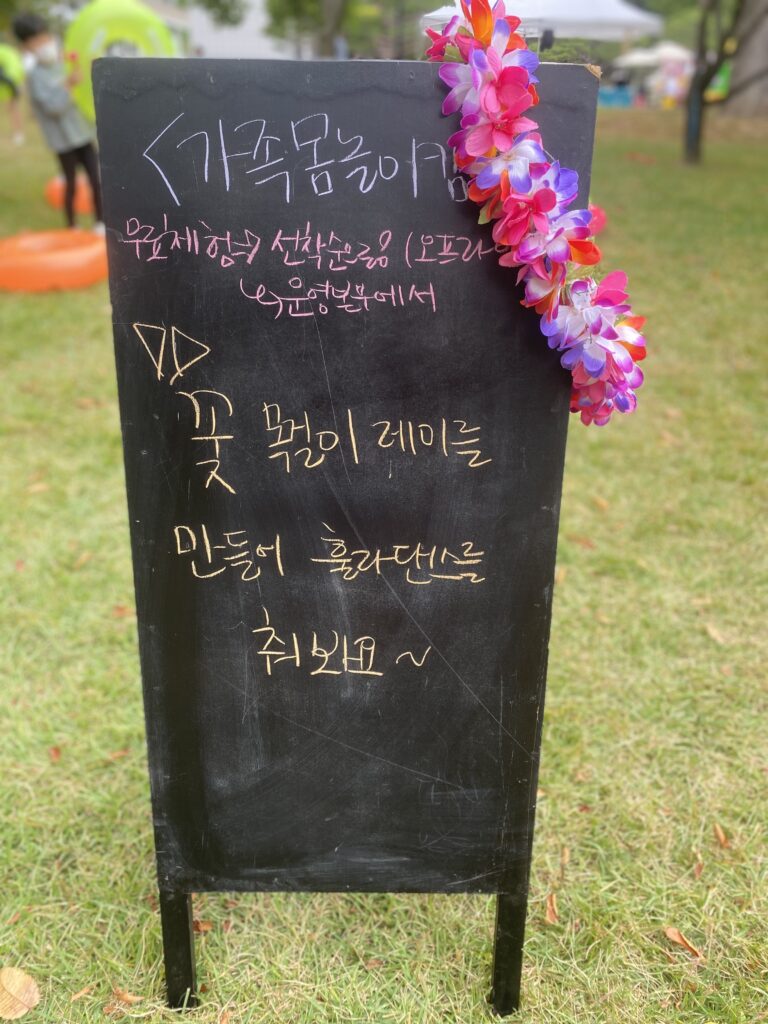 <가족몸놀이캠
무료체험→ 선착순모집 (오프라
↳운영본부에서
▷▷
꽃 목걸이 레이를
만들어 훌라댄스를
춰봐요~